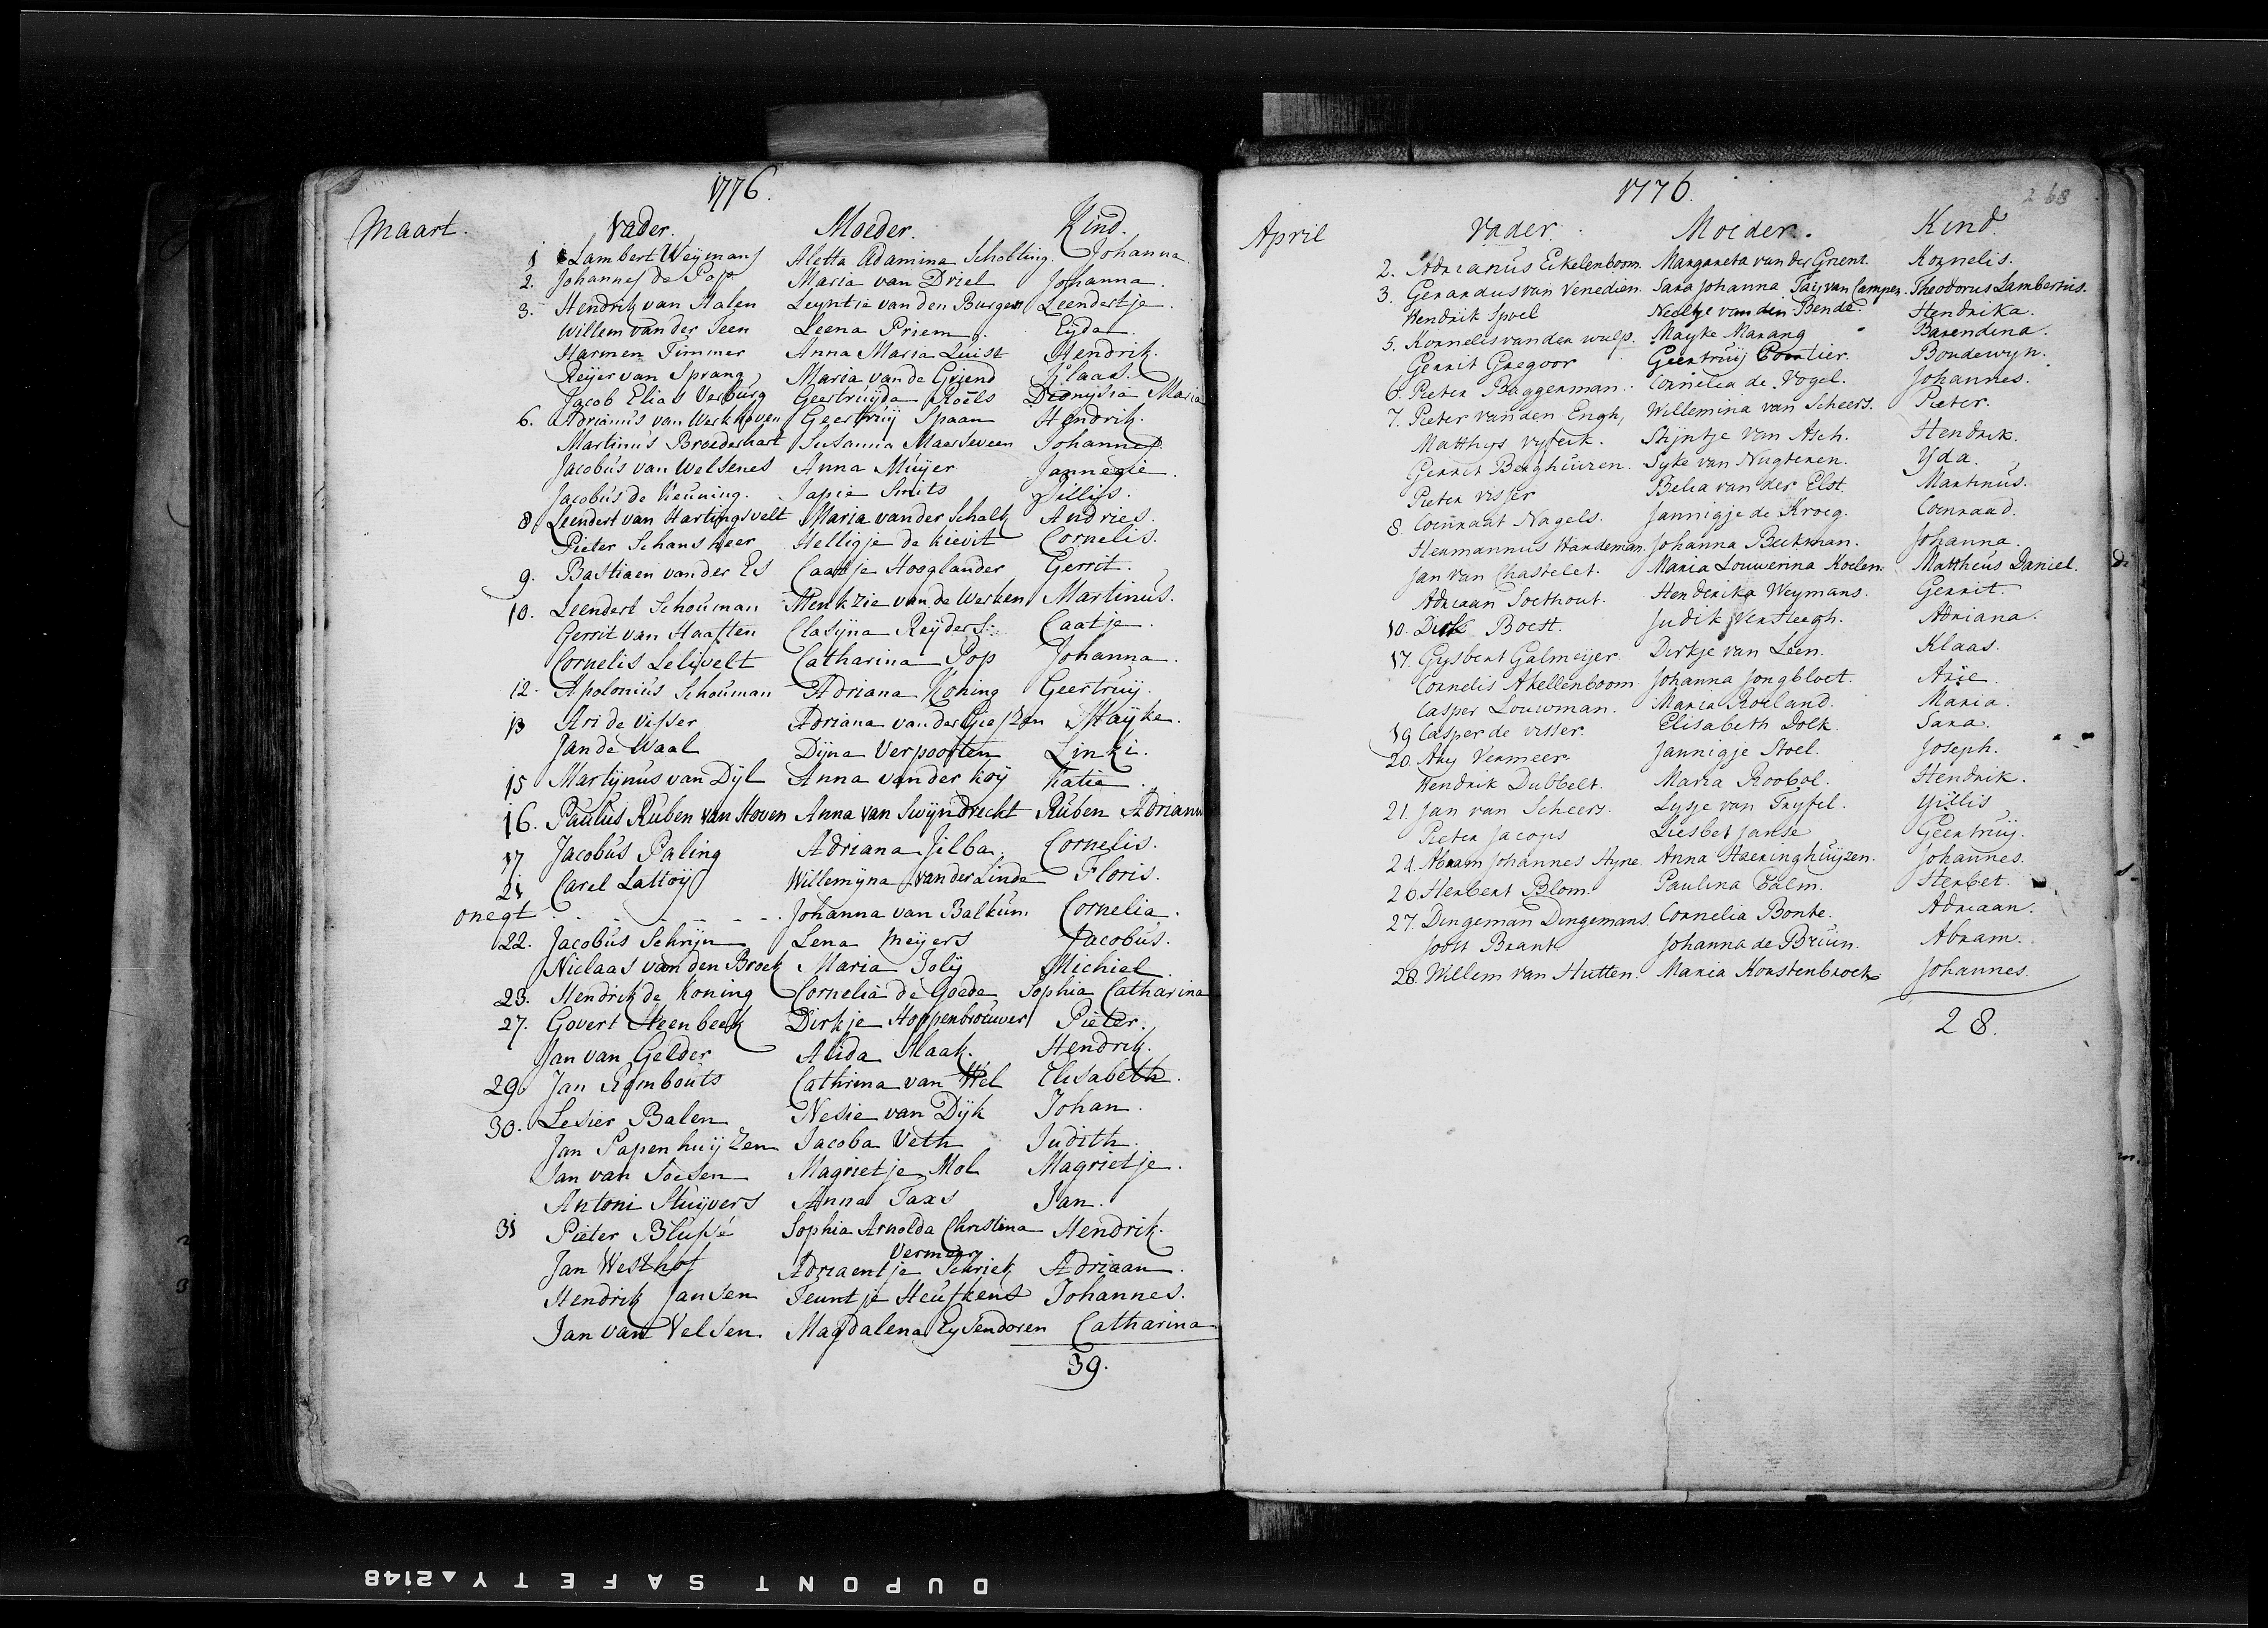 1776.
Maart. Vader. Moeder. Kind.
1 Lambert Weymans Aletta Adamina Scholting. Johanna
2. Johannes de Pop Maria van Driel Johanna.
3. Hendrik van Halen Leyntie van den Burgen Leendertje.
Willem van der Teen Leena Priem Eyda.
Harmen Timmer Anna Maria Quist Hendrik.
Reijer van Sprang Maria van de Griend Klaas.
Jacob Elias Verburg Geertruijda Roels Dionysia Maria
6. Adrianus van Werkhoven Geertruij Spaan Hendrik.
Martinus Broedehart Susanna Maaseween Johannes
Jacobus van Welsenes Anna Muijer Jannegie.
Jacobus de Keuning. Japie Smits Jillis.
8. Leendert van Hartingsvelt Maria van der Schalk Andries.
Pieter Schansheer Helligje de Kievit Cornelis.
9. Bastiaen van der Es Caatje Hooglander Gerrit.
10. Leendert Schouman Menkzie van de Werken Martinus.
Gerrit van Haaften Clasijna Reijders. Caatje.
Cornelis Lelivelt Catharina Pop Johanna.
12. Apolonius Schouman Adriana Koning Geertruij.
13 Ari de Visser Adriana van der Giessen Maijke.
Jan de Waal Dijna Verpoorten Linki.
15 Martijnus van Dijl Anna van der Koij Katie.
16. Paulus Ruben van Hoven Anna van Swijndrecht Ruben Adrianu
17 Jacobus Paling Adriana Jilba. Cornelis.
21 Carel Lattoij Willemijna van der Linde Floris.
onegt . . . . . . . Johanna van Balkum. Cornelia.
22. Jacobus Schrijn Lena Meijers Jacobus.
Niclaas van den Broek Maria Jolij Michiel.
23. Hendrik de Koning Cornelia de Goede Sophia Catharina
27. Govert Steenbeek Dirkje Hoppenbrouwers Pieter.
Jan van Gelder Alida Maak. Hendrik.
29. Jan Rombouts Cathrina van Wel Elisabeth.
30. Lesier Balen Nesie van Dijk Johan.
Jan Papenhuijzen Jacoba Veth Judith.
Jan van Soesen Magrietje Mol Magrietje.
Antoni Stuijvers Anna Taxs Jan.
31 Pieter Blussé Sophia Arnolda Christina Hendrik.
Vermeer
Jan Westhof Adriaentje Schriek Adriaan.
Hendrik Jansen Teuntje Heufkens Johannes.
Jan van Velsen. Magdalena Eysendoren Catharina
39.
1776. 268
April Vader. Moeder. Kind.
2. Adrianus Eikelenboom. Margareta van der Grient. Kornelis.
3. Gerardus van Venedien. Sara Johanna Taij van Campen. Theodorus Lambertus.
Hendrik Spoel Neeltje van den Bende. Hendrika.
5. Kornelis van der Wulp. Mayke Marang Barendina.
Gerrit Gregoor Geertruij Coortier. Boudewyn.
6. Pieter Baggerman. Cornelia de Vogel. Johannes.
7. Pieter van den Engh, Willemina van Scheers. Pieter.
Matthys Vyfeik. Stijntje van Asch. Hendrik.
Gerrit Berghuizen. Syke van Nugteren. Yda.
Pieter Visser Belia van der Elst. Martinus.
8. Coenraat Nagels. Jannigje de Kroeg. Coenraad.
Hermannus Wardeman. Johanna Beekman. Johanna.
Jan van Chastelet. Maria Louwerina Koelen. Mattheus Daniel.
Adriaan Soethout. Henderika Weymans. Gerrit.
10. Dirk Boest. Judik Versteegh. Adriana.
17. Gysbert Galmeijer. Dirkje van Leen. Klaas.
Cornelis Akellenboom Johanna Jongbloet. Arie.
Casper Louwman. Maria Roeland. Maria.
19 Casper de Visser. Elisabeth Dolk. Sara.
20. Ary Vermeer. Jannigje Noel. Joseph.
Hendrik Dubbelt. Maria Roobol. Hendrik.
21. Jan van Scheers. Lysje van Tryfel. Yillis
Pieter Jacops Liesbet Janse Geertruij.
24. Abram Johannes Hyne Anna Haeringhuijzen. Johannes.
26. Herbert Blom. Paulina Calm. Herbet.
27. Dingeman Dingemans. Cornelia Bonte. Adriaan.
Joost Brant Johanna de Bruin. Abram.
28. Willem van Hutten. Maria Korstenbroek Johannes.
28.
DUPONT SAFETY▲2148